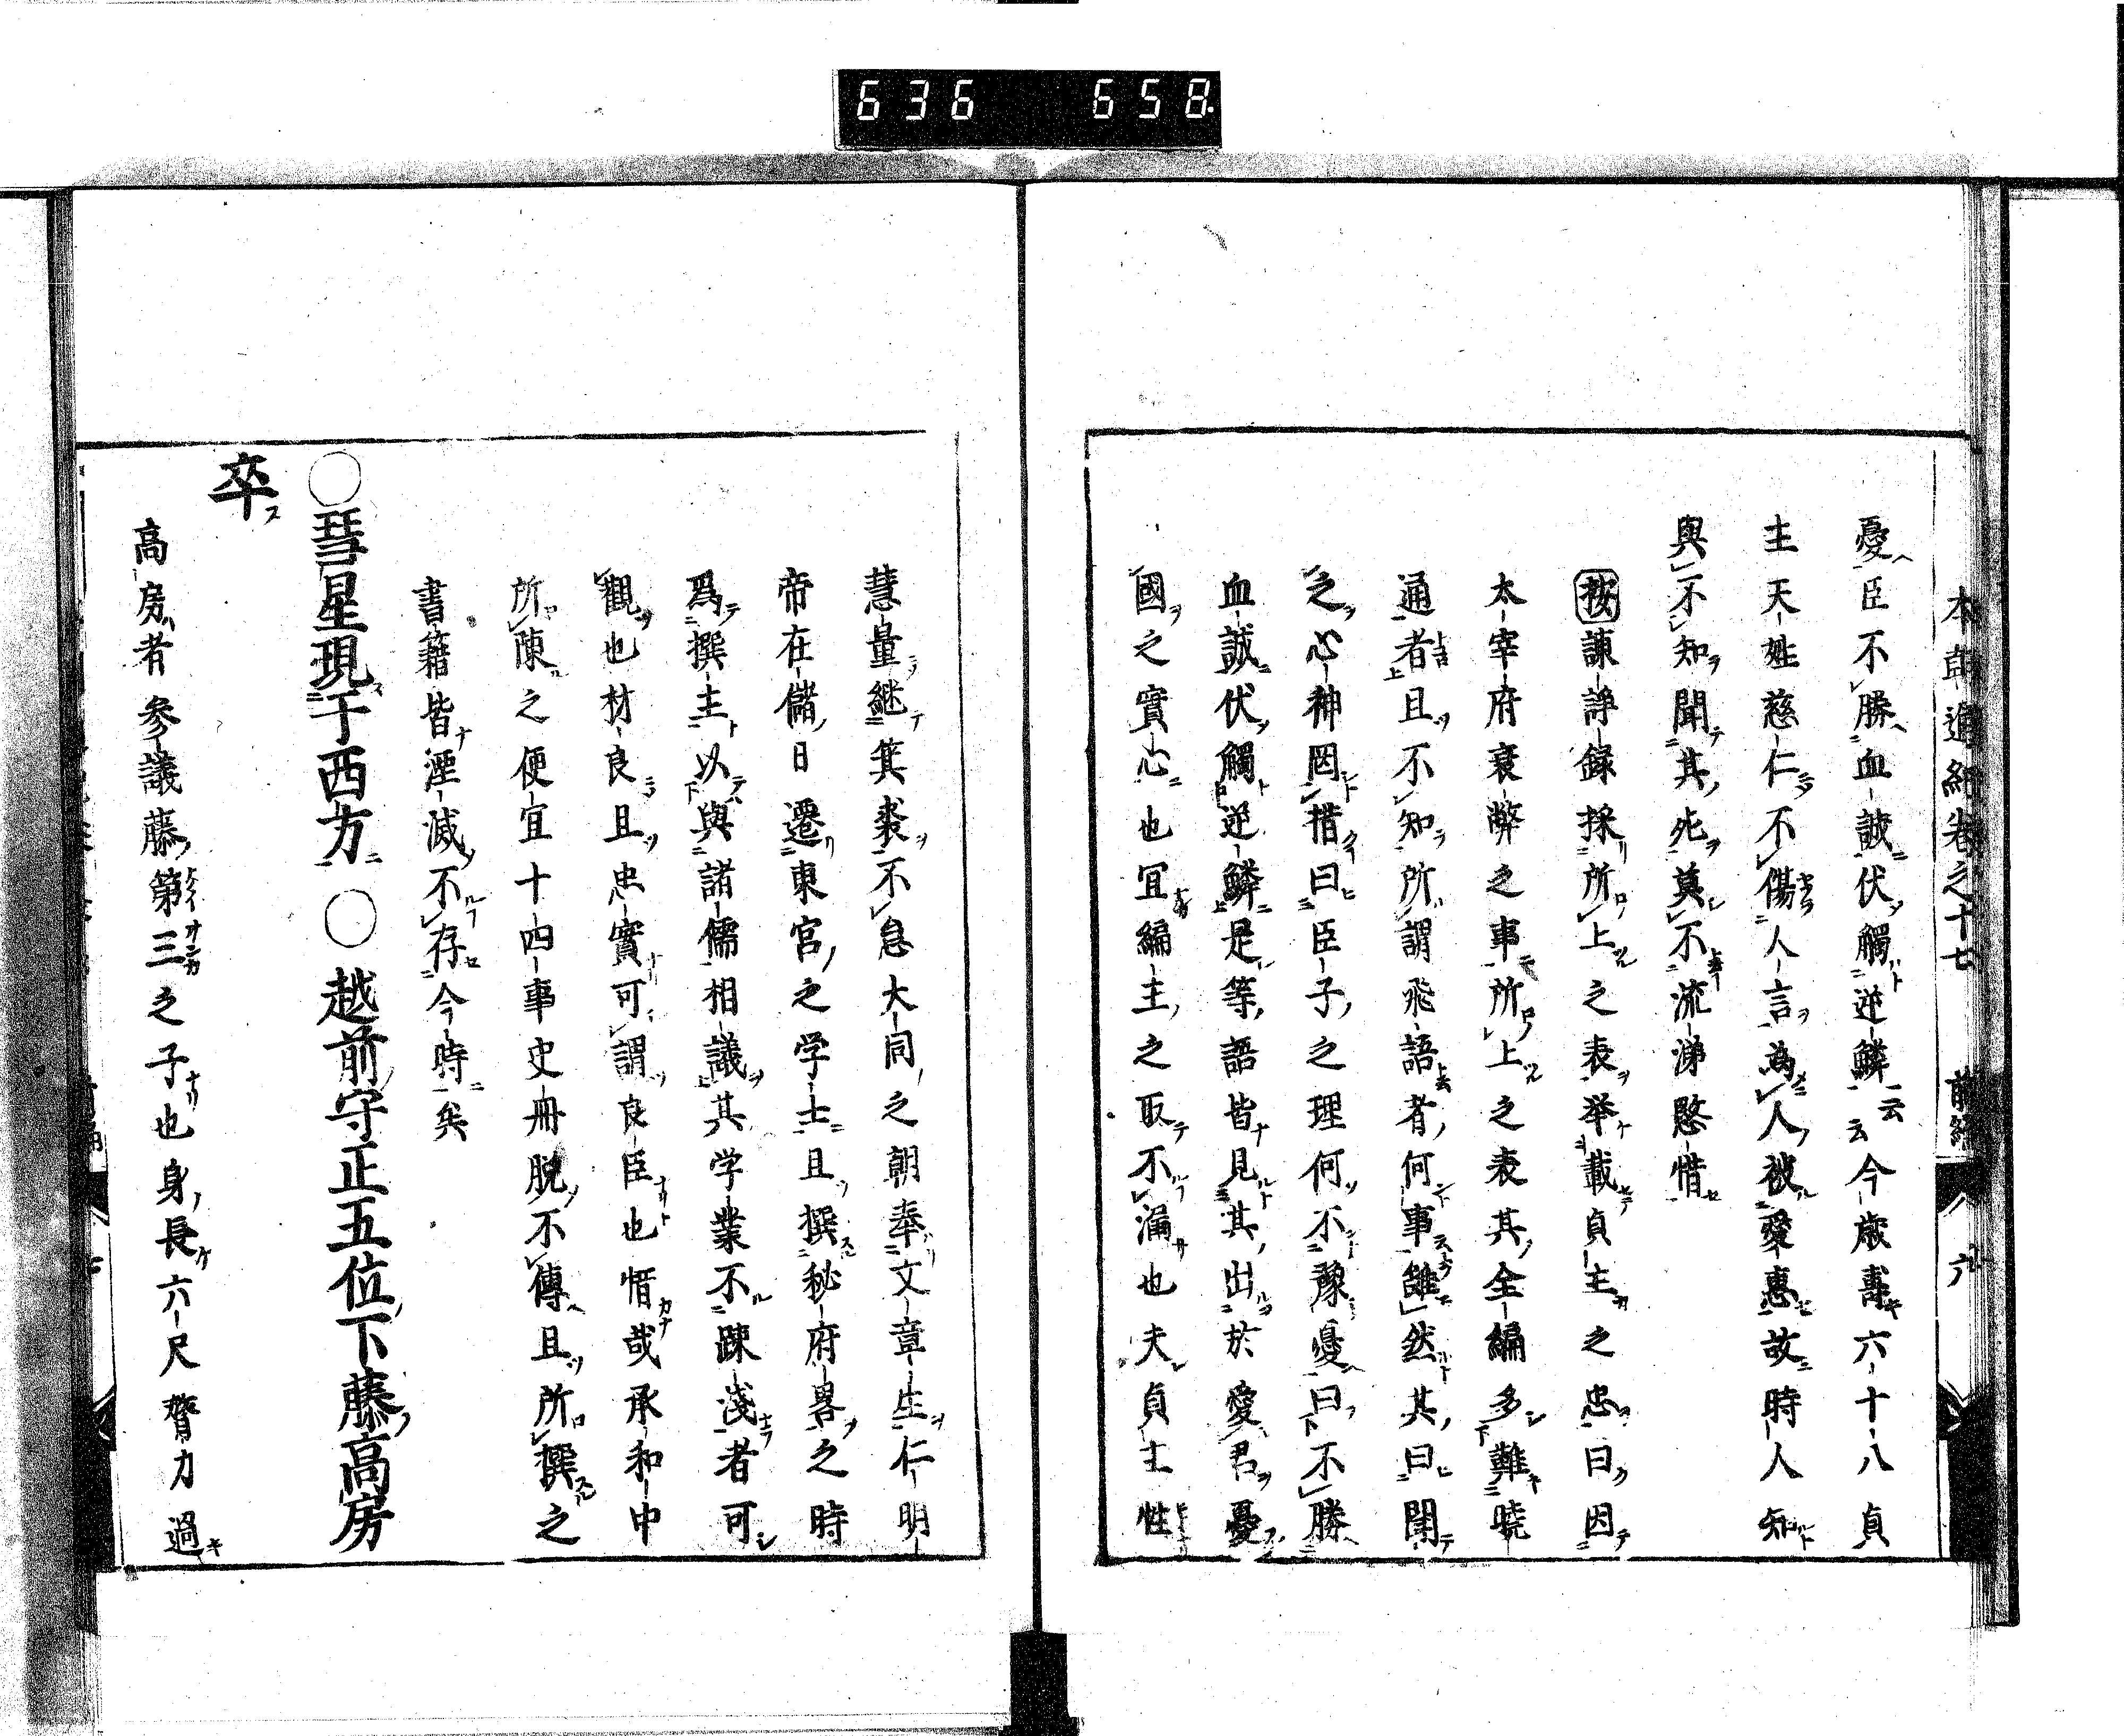 636 658
本朝通紀卷之十七 前編 八 六
憂臣不勝血誠伏觸逆鱗云云今歳壽六十八貞
主天姓慈仁不傷人言為人被愛惠故時人知
與不知聞其死莫不流涕愍惜
按諫諍録採所上之表挙載貞主之忠曰因
太宰府衰弊之事所上之表其全編多難曉
通者且不知所謂飛語者何事雖然其曰閽
之心神罔措曰臣子之理何不豫憂曰不勝
血誠伏觸逆鱗是等語皆見其出於愛君憂
國之實心也宜編主之取不漏也夫貞主性
慧量継箕裘不怠大同之朝奉文章生仁明
帝在儲日遷東宮之学士且撰秘府畧之時
爲撰主以與諸儒相議其学業不踈淺者可
觀也材良且忠實可謂良臣也惜哉承和中
所陳之便宜十四事史冊脱不傳且所撰之
書籍皆湮滅不存今時矣
○彗星現于西方○越前守正五位下藤高房
卒
高房者参議藤第三之子也身長六尺膂力過